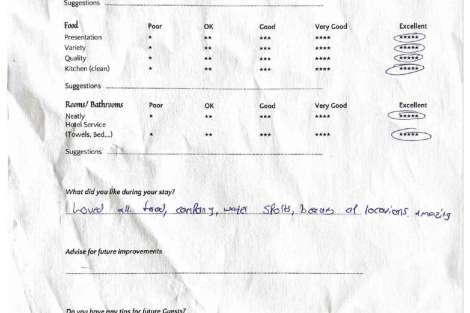 Suggestions
Food Poor OK Good Very Good Excellent
Presentation * ** *** **** *****
Variety * ** *** **** *****
Quality * ** *** **** *****
Kitchen (clean) * ** *** **** *****
Suggestions
Rooms/ Bathrooms Poor OK Good Very Good Excellent
Neatly * ** *** **** *****
Hotel Service
(Towels, Bed,...) * ** *** **** *****
Suggestions
What did you like during your stay?
Loved all food, company, water sports, of locations, amazing
Advise for future improvements
Do you have any tips for future Guests?